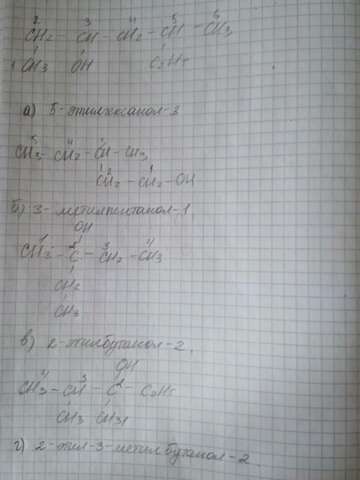 2 3 4 5 6
CH2 - CH - CH2 - CH - CH3
1 CH3 OH C2H5
а) 5-этилгексанол-3
5 4 3
CH3 - CH2 - CH - CH3
2 1
CH2 - CH2 - OH
б) 3-метилпентанол-1
OH
1 2 3 4
CH3 - C - CH2 - CH3
CH2
CH3
в) 2-этилбутанол-2.
OH
4 3 2
CH3 - CH - C - C2H5
CH3 CH3
г) 2-этил-3-метилбутанол-2